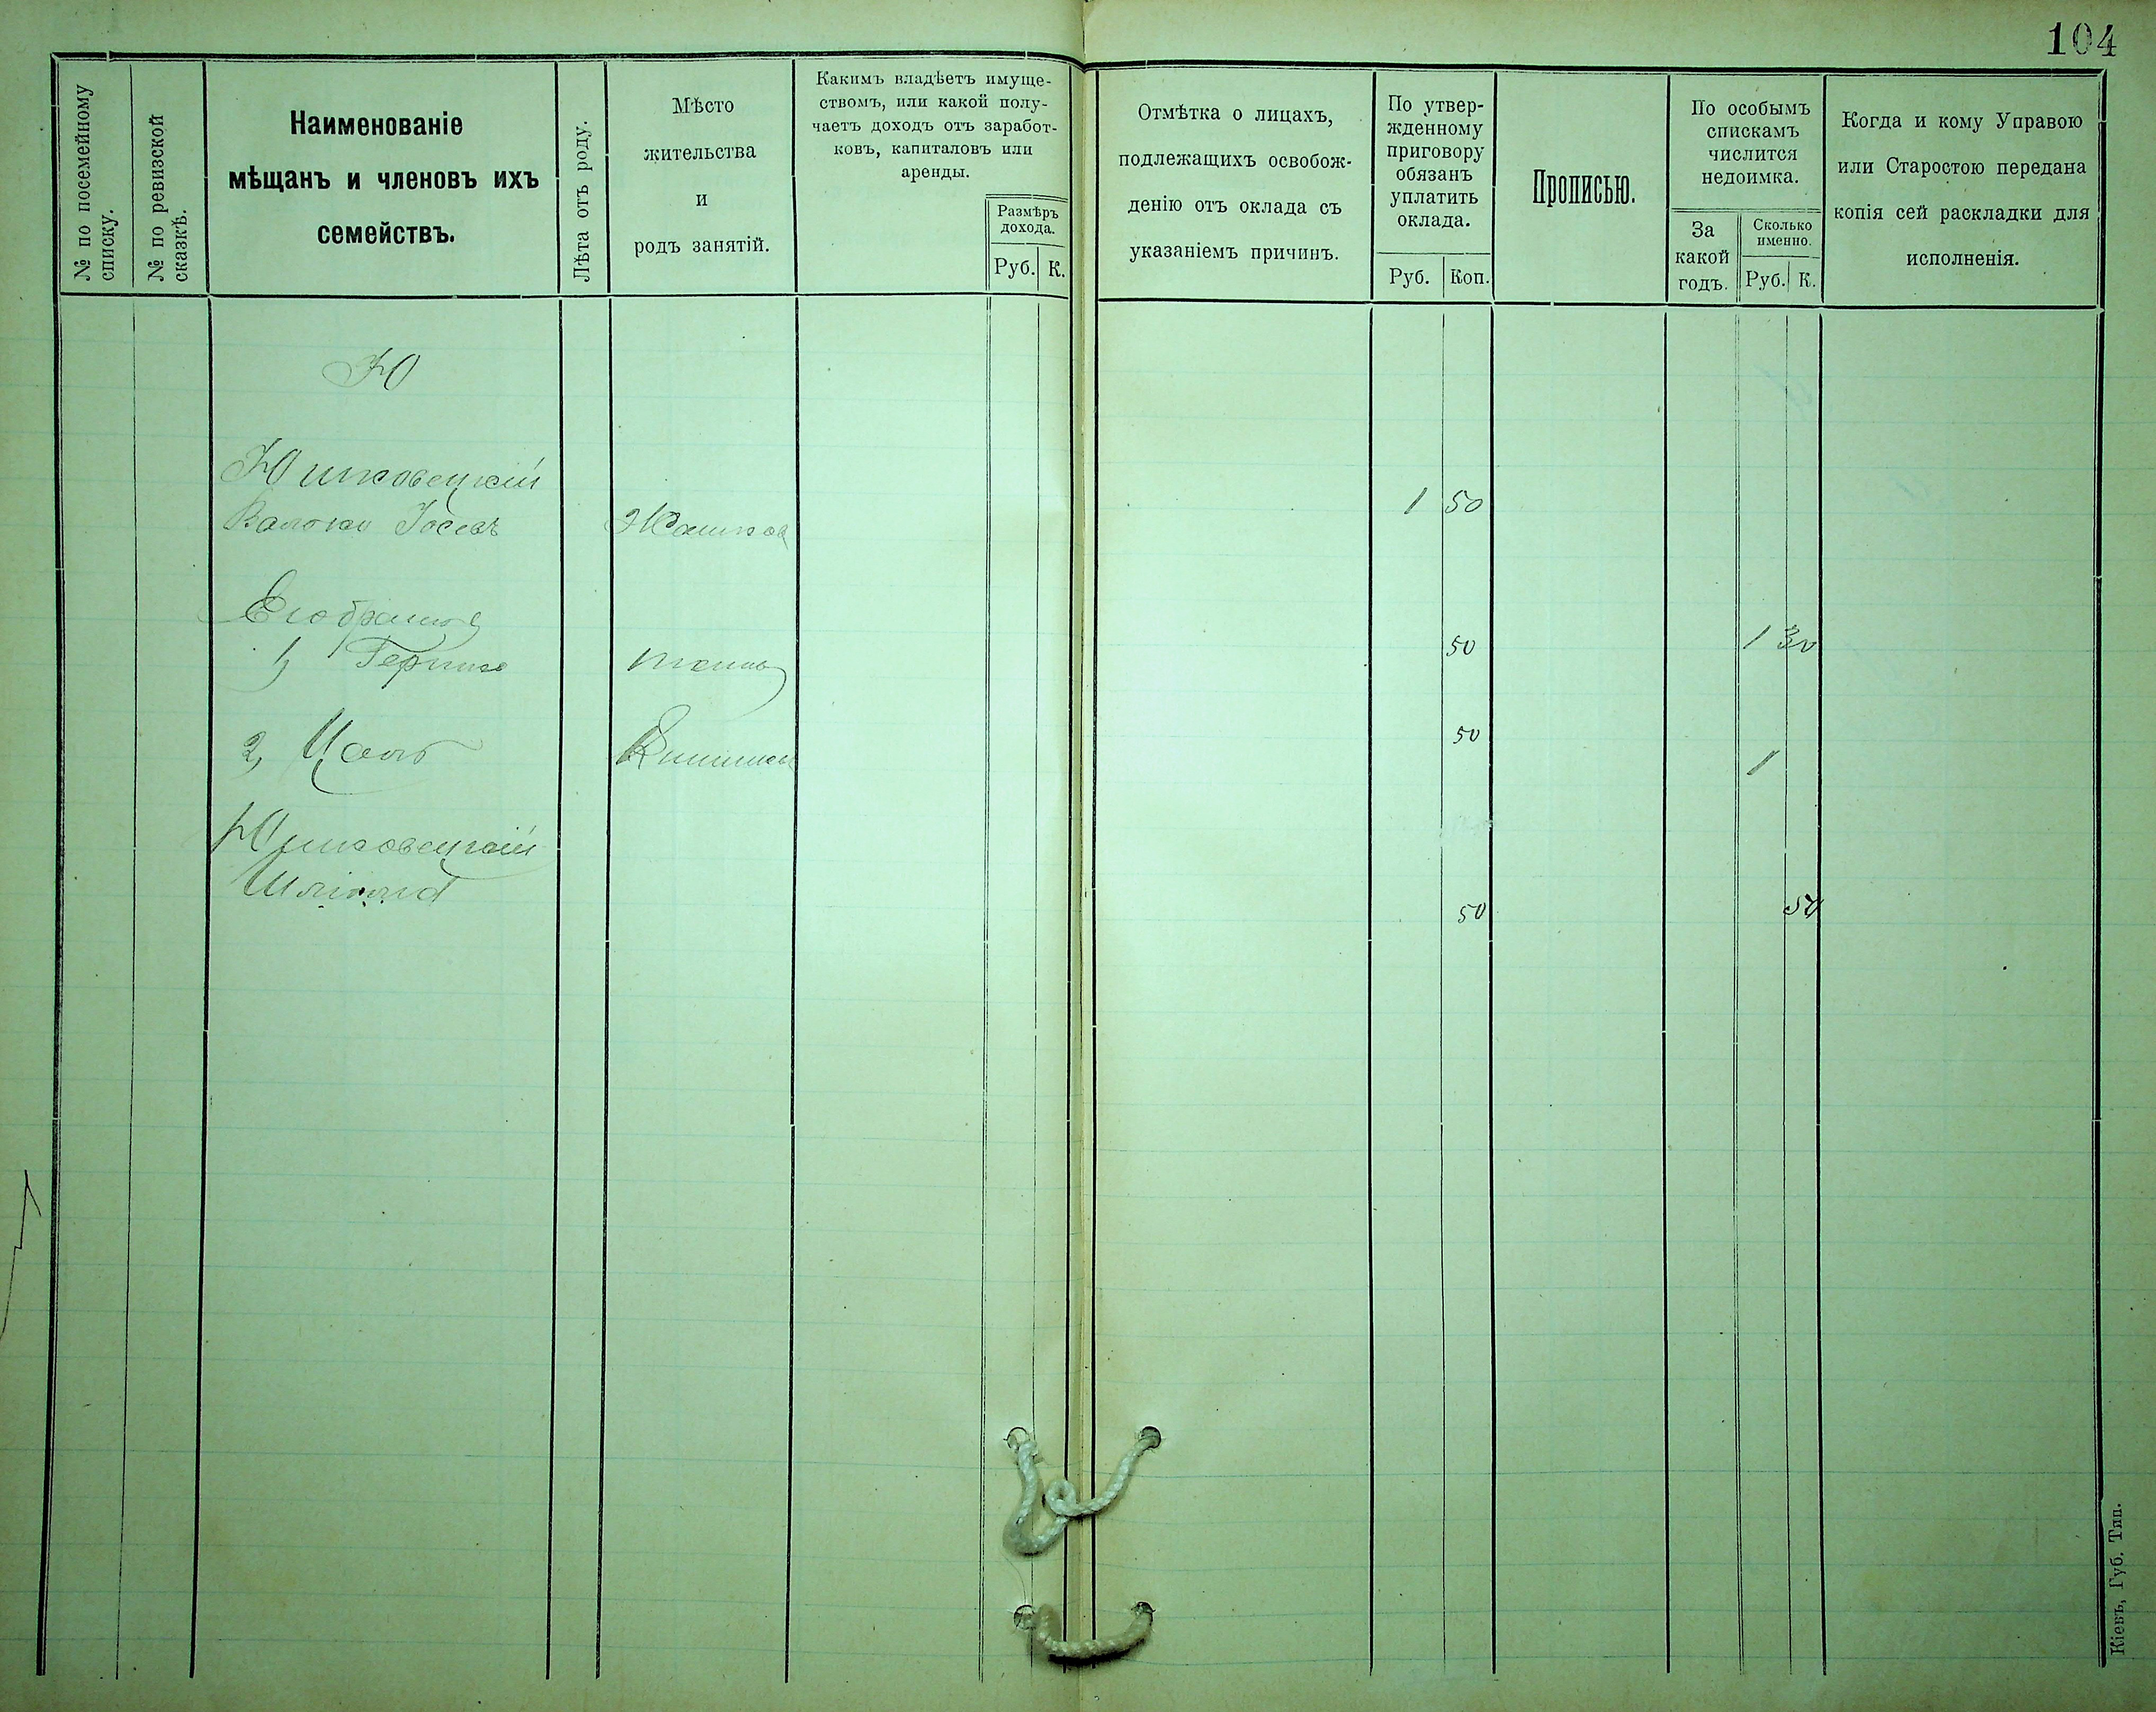 104
№ по посемейному
списку.
№ по ревизской
сказкѣ.
Наименованіе
мѣщанъ и членовъ ихъ
семействъ.
Лѣта отъ роду.
Мѣсто
жительства
и
родъ занятій.
Какимъ владѣетъ имуще-
ствомъ, или какой полу-
чаетъ доходъ отъ заработ-
ковъ, капиталовъ или
аренды.
Размѣръ
дохода.
Руб. К.
Отмѣтка о лицахъ,
подлежащихъ освобож-
денію отъ оклада съ
указаніемъ причинъ.
По утвер-
жденному
приговору
обязанъ
уплатить
оклада.
Руб. Коп.
Прописью.
По особымъ
спискамъ
числится
недоимка.
За
какой
годъ.
Сколько
именно.
Руб. К.
Когда и кому Управою
или Старостою передана
копія сей раскладки для
исполненія.
Ю
Юшковецкій
Іосевъ Жашков 1 50
Его братья
1) 50 1 30
2, 50 1
Юшковецкій
50 50
Кіевъ, Губ. Тип.